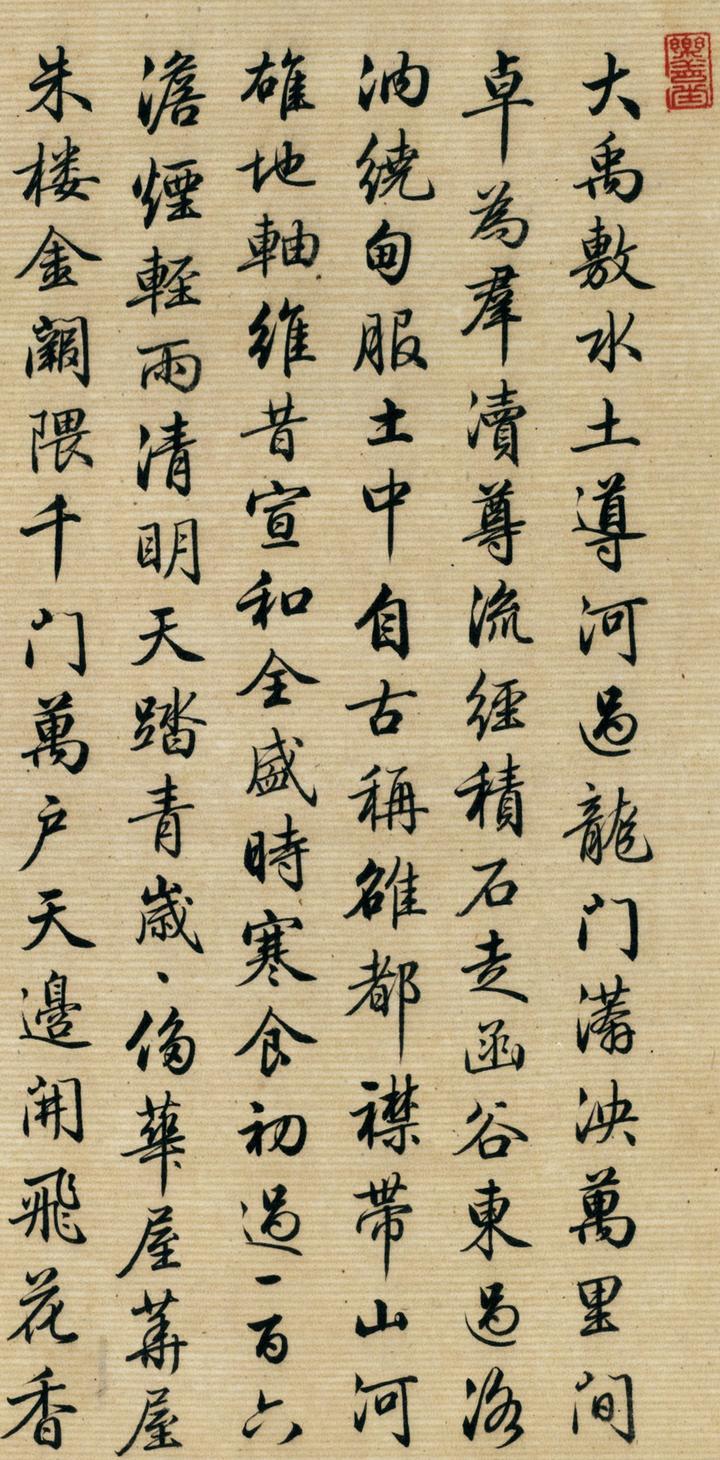 樂善堂
大禹敷水土導河過龍門滿泱萬里間
卓為羣瀆尊流經積石走函谷東過洛
汭繞甸服土中自古稱雒都襟帶山河
雄地軸維昔宣和全盛時寒食初過一百六
澹煙輕雨清明天踏青歲、侈華屋華屋
朱楼金闕隈千門萬户天邊開飛花香